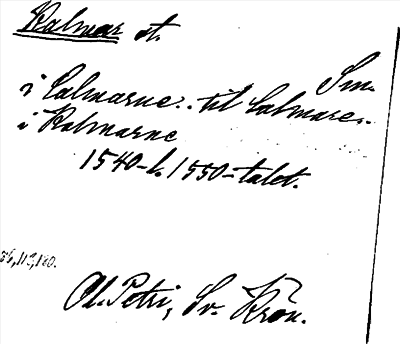 Kalmar st.
Sm.
i Calmarne.. til Calmare..
i Kalmarne
1540-t. 1550-talet.
113, 180.
Ol. Petri, Sv. Krön.